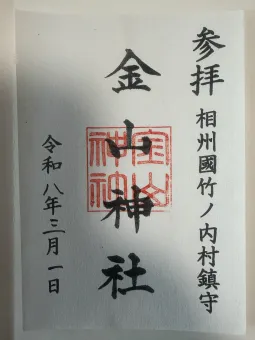 参拝 相州國竹ノ内村鎮守
金山神社
令和八年三月一日